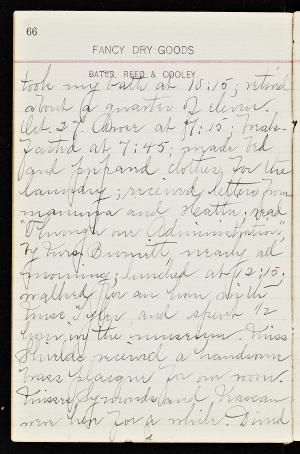 66
FANCY DRY GOODS
BATES, REED & COOLEY
took my bath at 10:15; retired
about a quarter of eleven.
Oct. 27. Arose at 7:15; break-
fasted at 7:45; made bed
and prepared clothes for the
laundry; received letters from
mamma and Hattie; read
"Through one Administration,"
by Mrs. Burnett, nearly all
morning; lunched at 12:15;
walked for an hour with
Miss Tyler, and spent 1/2
hour in the museum. Miss
received a handsome
brass placque for our room.
Misses Symonds and
were here for a while. Dined